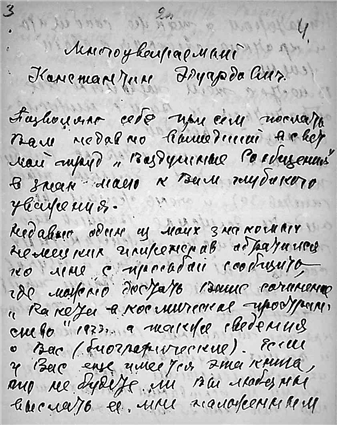 3 2а 4
Многоуважаемый
Константин Эдуардович.
Позволяю себе при сем послать
Вам недавно вышедший в свет
мой труд „Воздушные Сообщения"
в знак моего к Вам глубокого
уважения.
Недавно один из моих знакомых
немецких инженеров обратился
ко мне с просьбой сообщить,
где можно достать Ваше сочинение
„Ракета в космическое простран-
ство" а также сведения
о Вас (биографические). Если
у Вас еще имеется эта книга,
то не будете ли Вы любезны
выслать ее мне наложенным